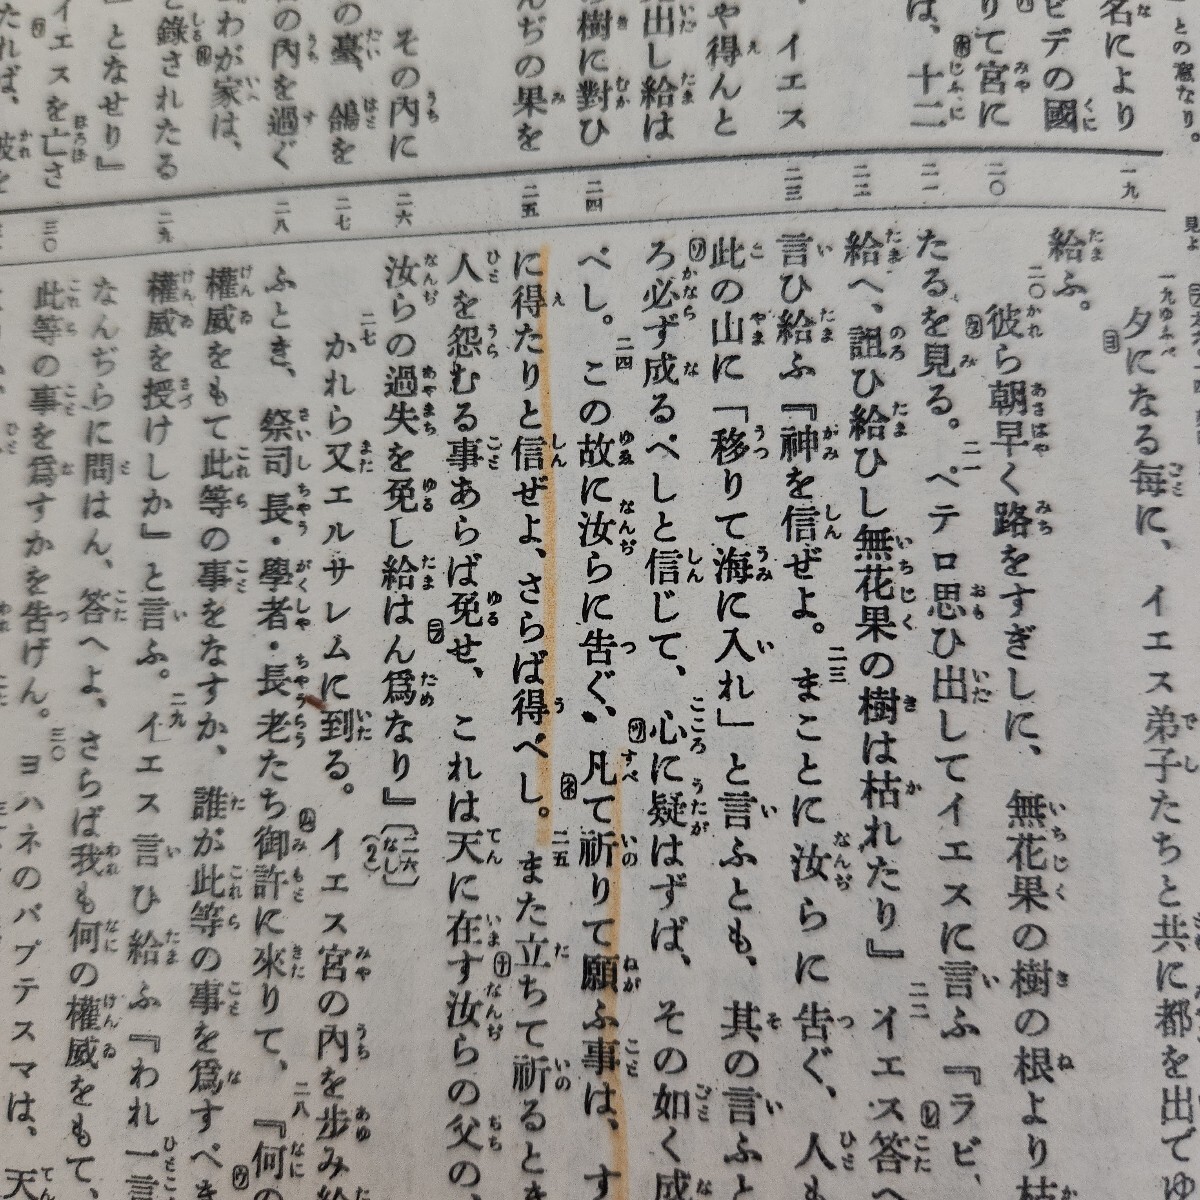 との意なり。
名により
ビデの國
りて宮に
は、十二
イエス
や得んと
出し給は
樹に對ひ
んぢの果を
その內に
の臺、鴿を
の內を過ぐ
わが家は、
と錄されたる
』となせり』
イエスを亡さ
たれば、
一九 二〇 二一 二二 二三 二四 二五 二六 二七 二八 二九 三〇
一九 夕になる每に、イエス弟子たちと共に都を出でゆ
給ふ。
二〇 彼ら朝早く路をすぎしに、無花果の樹の根より枯
たるを見る。二一 ペテロ思ひ出してイエスに言ふ『ラビ、
給へ、詛ひ給ひし無花果の樹は枯れたり』二二 イエス答へ
言ひ給ふ『神を信ぜよ。二三 まことに汝らに吿ぐ、人も
此の山に「移りて海に入れ」と言ふとも、其の言ふと
ろ必ず成るべしと信じて、心に疑はずば、その如く成
べし。二四 この故に汝らに吿ぐ、凡て祈りて願ふ事は、す
に得たりと信ぜよ、さらば得べし。二五 また立ちて祈るとき
人を怨むる事あらば免せ、これは天に在す汝らの父の、
汝らの過失を免し給はん爲なり』〔二六なし〕(2)
二七 かれら又エルサレムに到る。イエス宮の內を步み給
ふとき、祭司長・學者・長老たち御許に來りて、二八『何の
權威をもて此等の事をなすか、誰が此等の事を爲すべき
權威を授けしか』と言ふ。二九 イエス言ひ給ふ『われ一言
なんぢらに問はん、答へよ、さらば我も何の權威をもて、
此等の事を爲すかを吿げん。三〇 ヨハネのバプテスマは、天